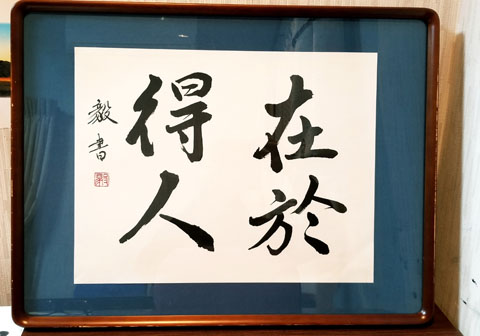 在於
得人
毅書